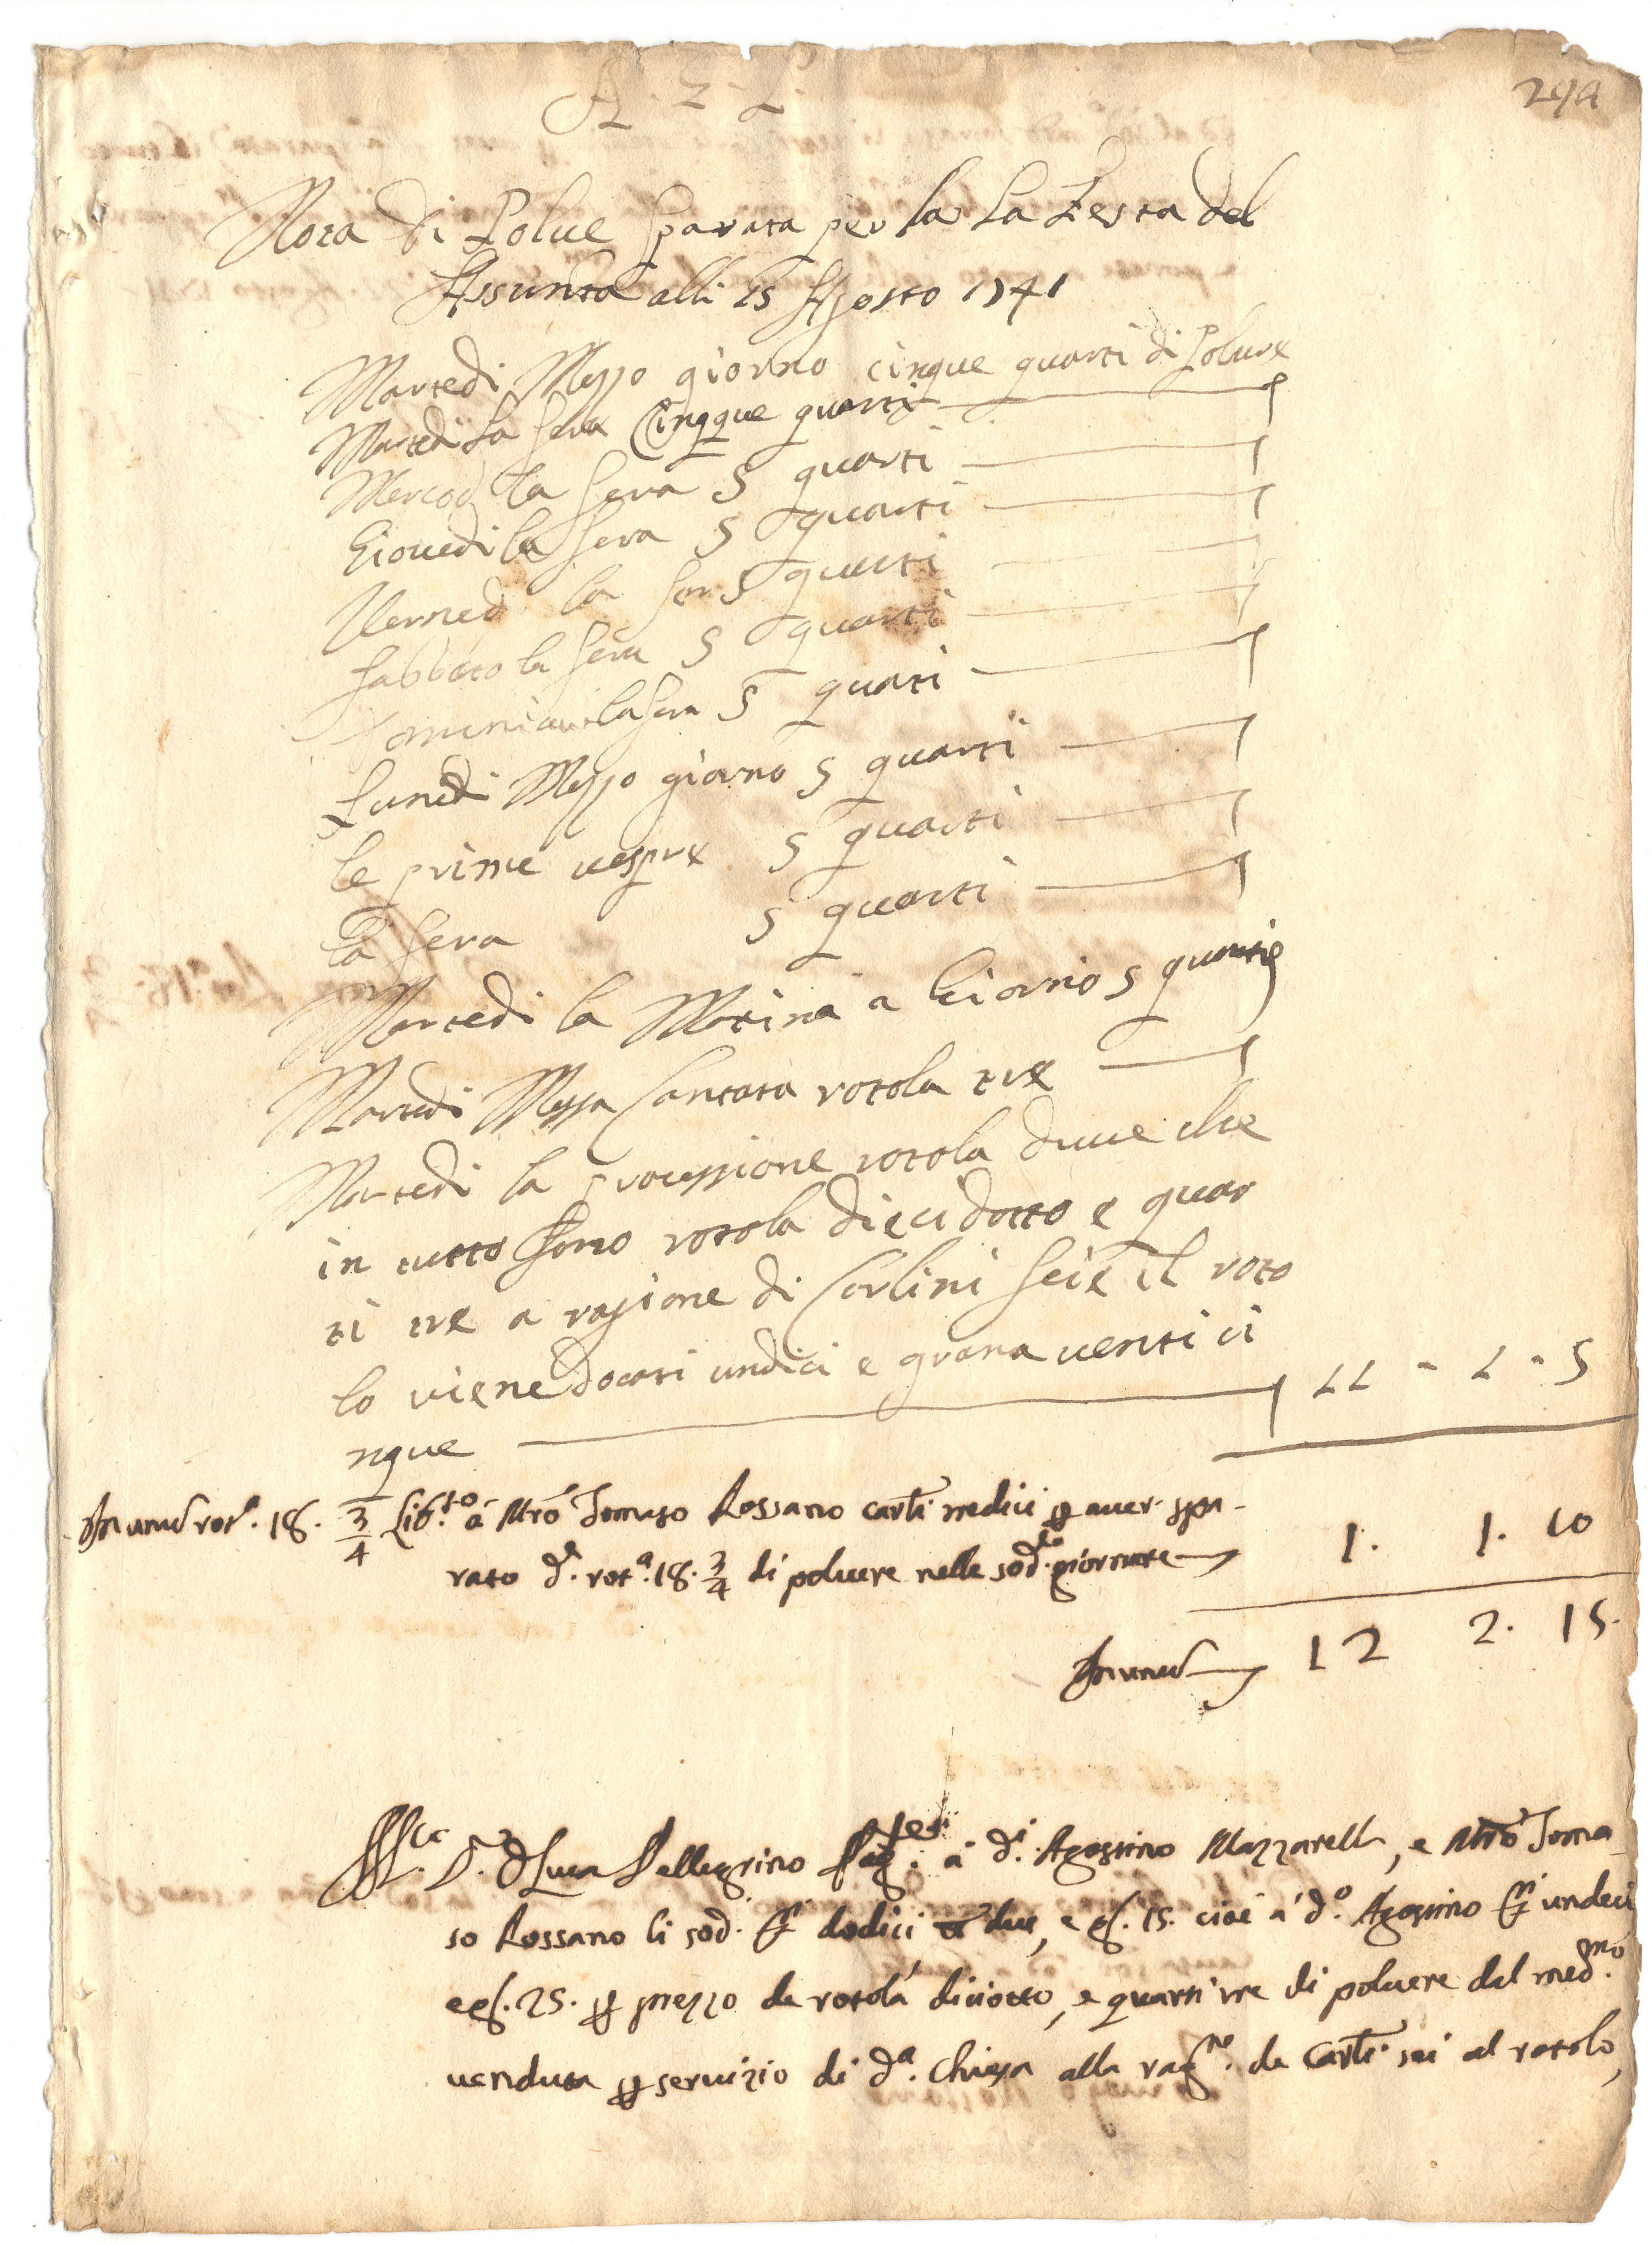 294
Nota di Polue sparata per la La Festa del
Assunta alli 15 Agosto 1741
Martedi Mezzo giorno cinque quarti di Poluere
Martedi La sera Cinqque quarti
Mercod la sera 5 quarti
Giouedi la sera 5 quarti
Venned la ser 5 quarti
Sabbato la sera 5 quarti
la sera 5 quarti
Lunedi Mezzo giorno 5 quarti
le prime uespre 5 quarti
La sera 5 quarti
Martedi la Matina a Giorno 5 quarti
Martedi Messa Cantata rotola tre
Martedi la processione rotola duue che
in tutto sono rotola diecidotto e quar
ti tre a ragione di Carlini seie il roto
lo viene docati undici e grana uenti ci
nque 11 - 1 - 5
In unum rot.a 18. 3/4 Lib.to á Mrõ Tomaso Rossano carl. medici p auer spa-
rato d.e rot.a 18. 3/4 di poluere nelle sod.e giornate 1. 1. 10
In unum 12 2. 15.
D. Luca Pellegrino á d.i Agostino Mazzarella, e Mrõ Toma
so Rossano li sod. dodici due, e g. 15. cioè á d.o Agostino undeci
e g. 25. p prezzo de rotola diciotto, e quarti tre di poluere dal med.mo
uenduta p seruizio di d.a Chiesa alla rag.ne de Carl. sei al rotolo,